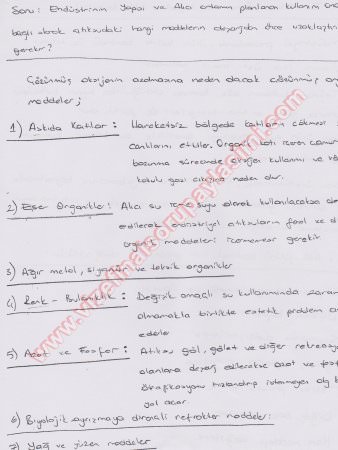 Soru: Endüstrinin Yapısı ve Alıcı ortamın planlanan kullanım
bağlı olarak atıksudaki hangi maddelerin deşarjdan önce
gerekir?
Çözünmüş oksijenin azalmasına neden olacak çözünmüş
maddeler;
1) Askıda Katılar: Hareketsiz bölgede katıların çökmesi
canlılarını etkiler. Organik katı içeren
bozunma sürecinde oksijen kullanımı ve
kokulu gaz çıkışına neden olur.
2) Eser Organikler: Alıcı su içme suyu olarak kullanılacaksa
edilerek endüstriyel atıksuların fenol ve
organik maddeleri içermemesi gerekir.
3) Ağır metal, siyanür ve toksik organikler
4) Renk - Bulanıklık: Değişik amaçlı su kullanımında
olmamakla birlikte estetik problem
ederle
5) Azot ve Fosfor: Atıksu göl, gölet ve diğer
alanlara deşarj edilecekse azot ve
ötrafikasyonu hızlandırıp istenmeyen
yol açar.
6) Biyolojik ayrışmaya dirençli refrakter maddeler:
7) Yağ ve yüzen maddeler
www.vizefinalsorupaylasimi.com